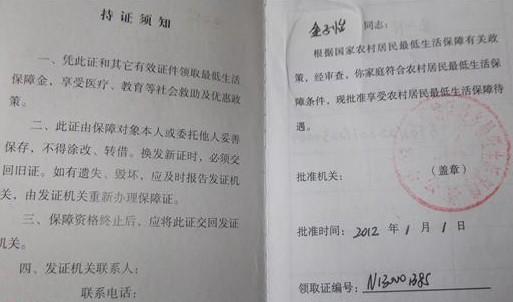 持证须知
一、凭此证和其它有效证件领取最低生活
保障金，享受医疗、教育等社会救助及优惠政
策。
二、此证由保障对象本人或委托他人妥善
保存，不得涂改、转借。换发新证时，必须交
回旧证。如有遗失、毁坏，应及时报告发证机
关，由发证机关重新办理保障证。
三、保障资格终止后，应将此证交回发证
机关。
四、发证机关联系人：
联系电话：
金子怡同志：
根据国家农村居民最低生活保障有关政
策，经审查，你家庭符合农村居民最低生活保
障条件，现批准享受农村居民最低生活保障待
遇。
批准机关：（盖章）
批准时间：2012年1月1日
领取证编号：N130001385